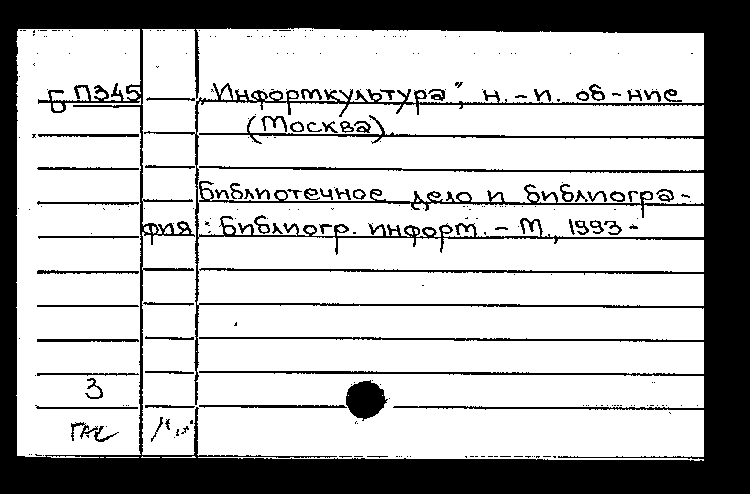 Б П345 „Информкультура“, н.-и. об-ние
(Москва).
Библиотечное дело и библиогра-
фия: Библиогр. информ. - М., 1993 -
3